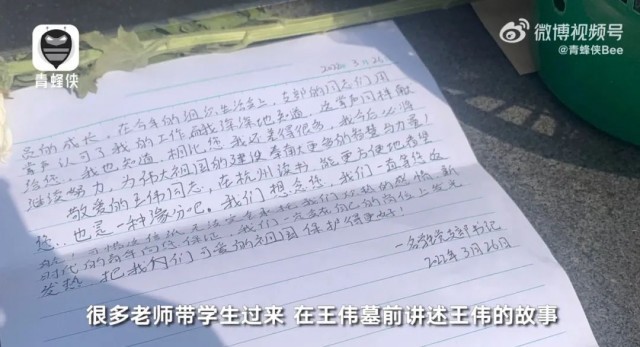 青蜂侠
微博视频号
@青蜂侠Bee
2022 3月26
的成长,在今年的组织生活会上,支部的同志们用
掌声认可了我的工作
给您,我也知道,相比您,我还差得很多,我今后必将
继续努力,为伟大祖国的建设奉献更多的智慧与力量!
敬爱的王伟同志,在杭州读书,能更方便地看望
您,也是一种缘分吧。我们想念您,我们一直
时代的青年向您保证,我们一定会在自己的岗位上发光
发热,把我们可爱的祖国保护得更好!
一名党支部书记
2022年3月26日
很多老师带学生过来 在王伟墓前讲述王伟的故事